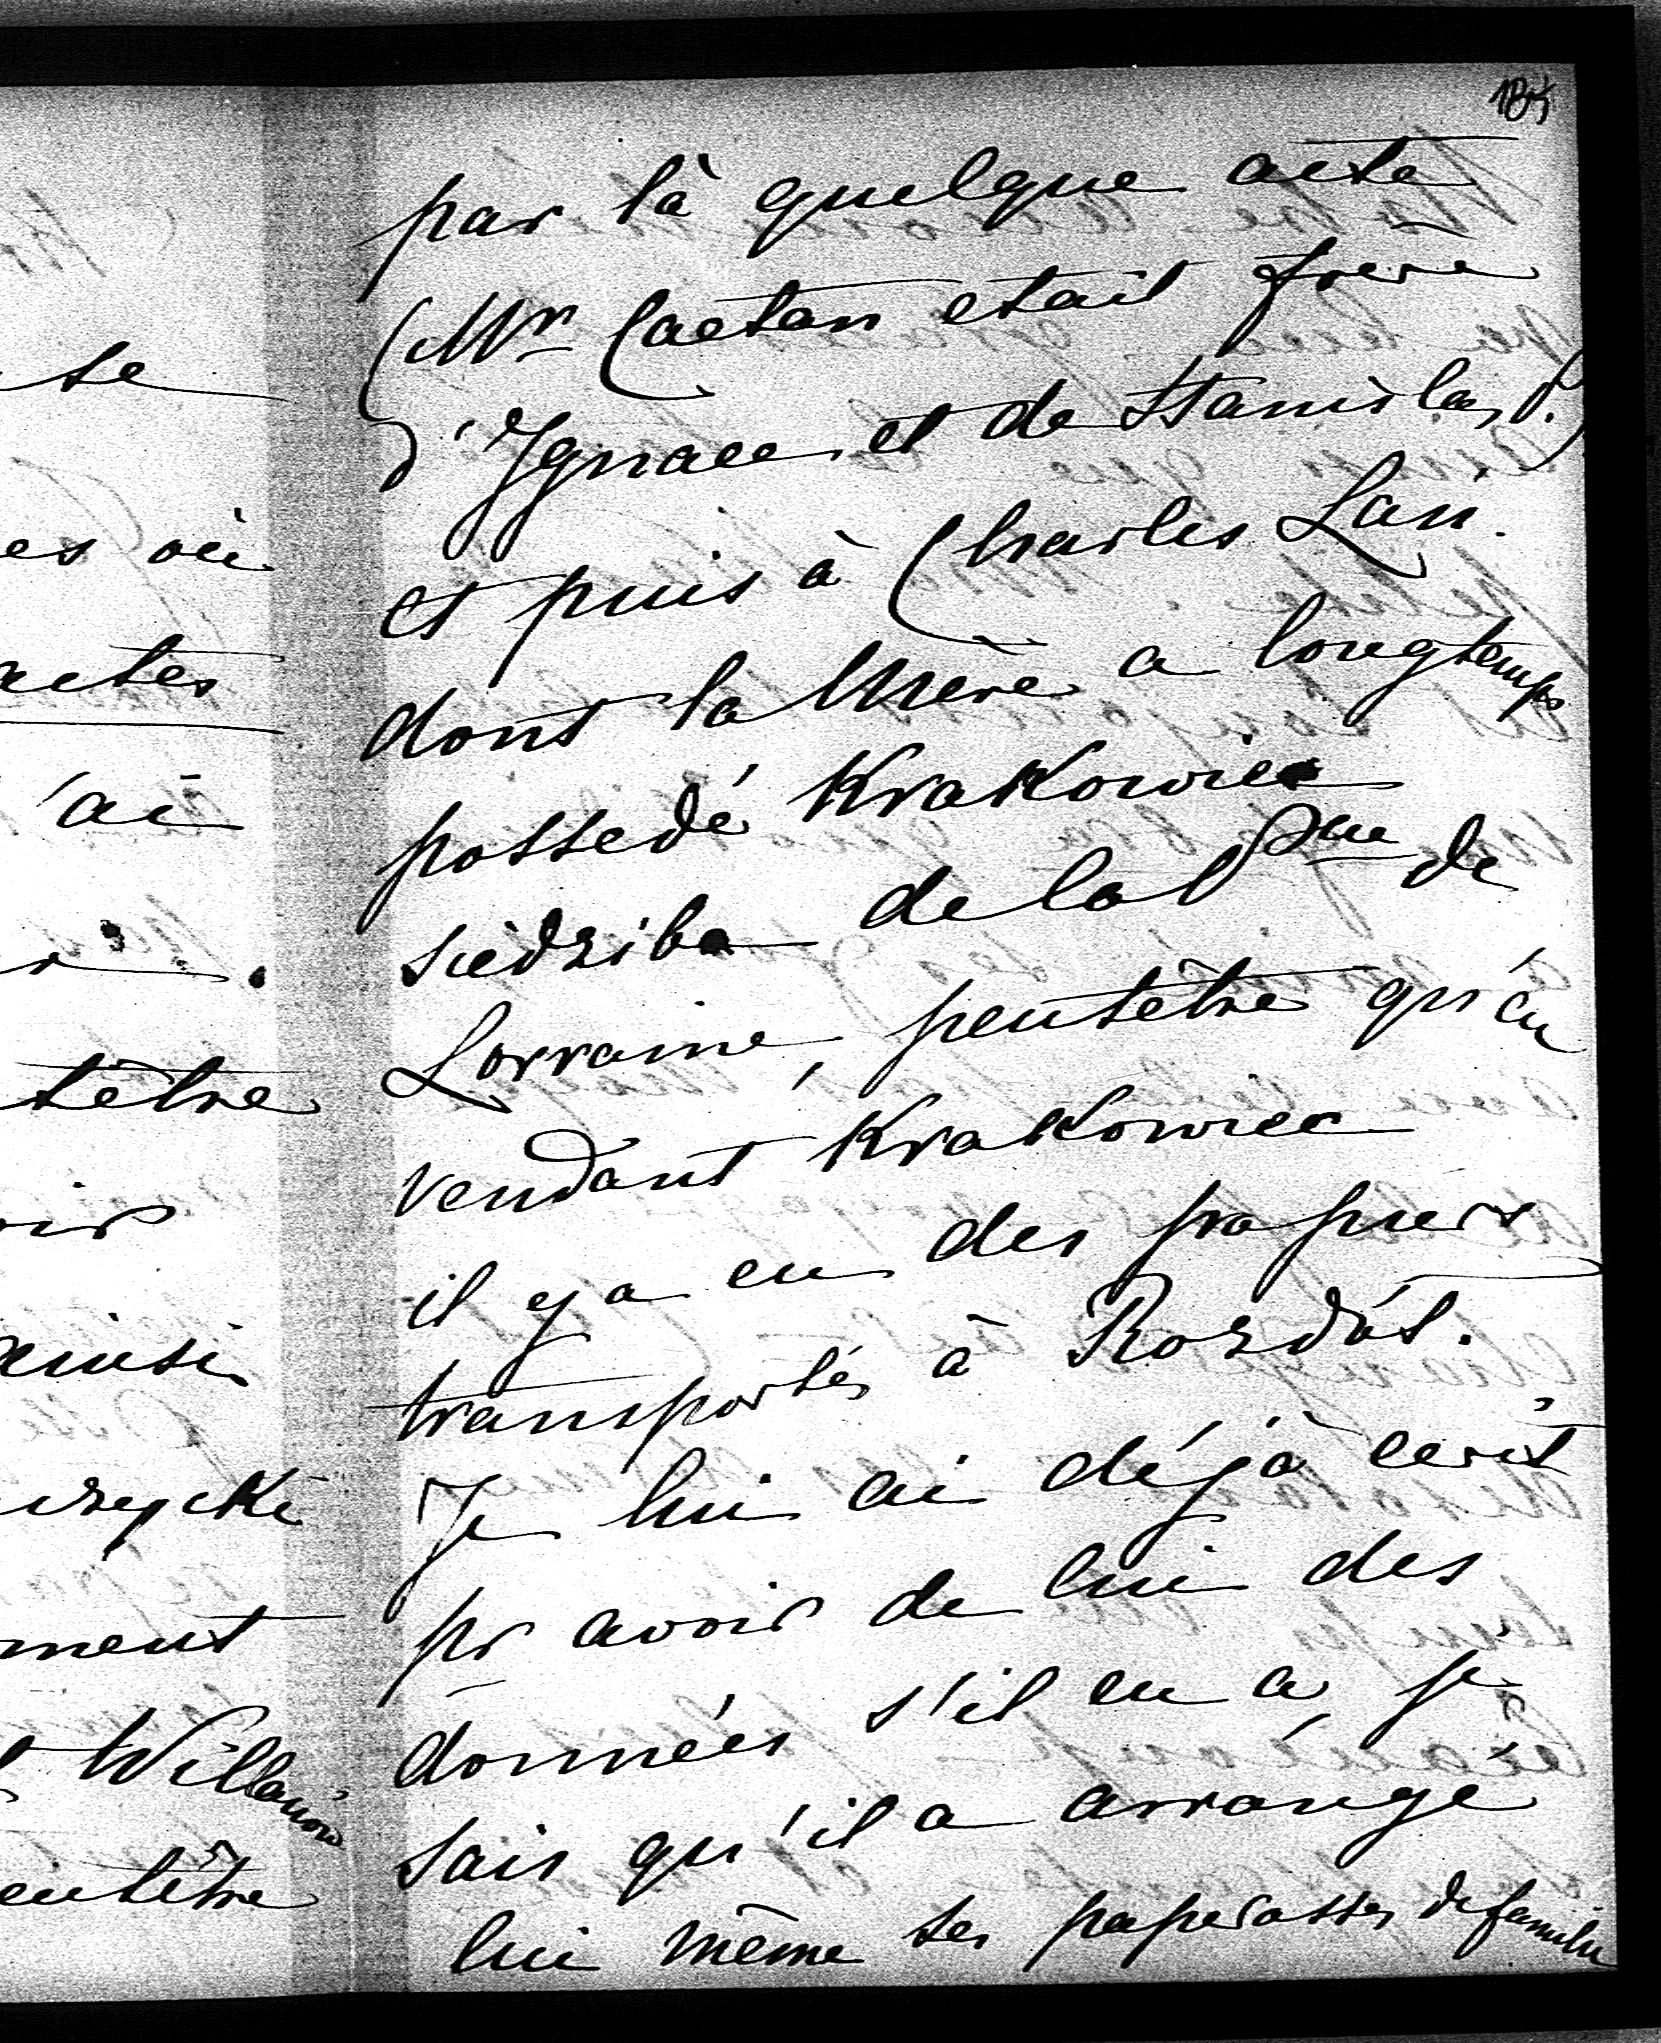 185
par là quelque acte
(Mr Caetan etait frere
d'Ignace et de Stanislas P.)
et puis à Charles Lan.
dont la Mère a longtemps
possedé Krakowiec
siedziba de la Psse de
Lorraine, peutêtre qu'en
vendant Krakowiec
il y a eu des papiers
transportés à Rozdół.
Je lui ai déjà ecrit
pr avoir de lui des
données s'il en a, je
sais qu'il a arrangé
lui même ses paperasses de famille
se
es où
actes
'ai
têtre
oir
ainsi
uszycki
ment
Willanów
eutêtre